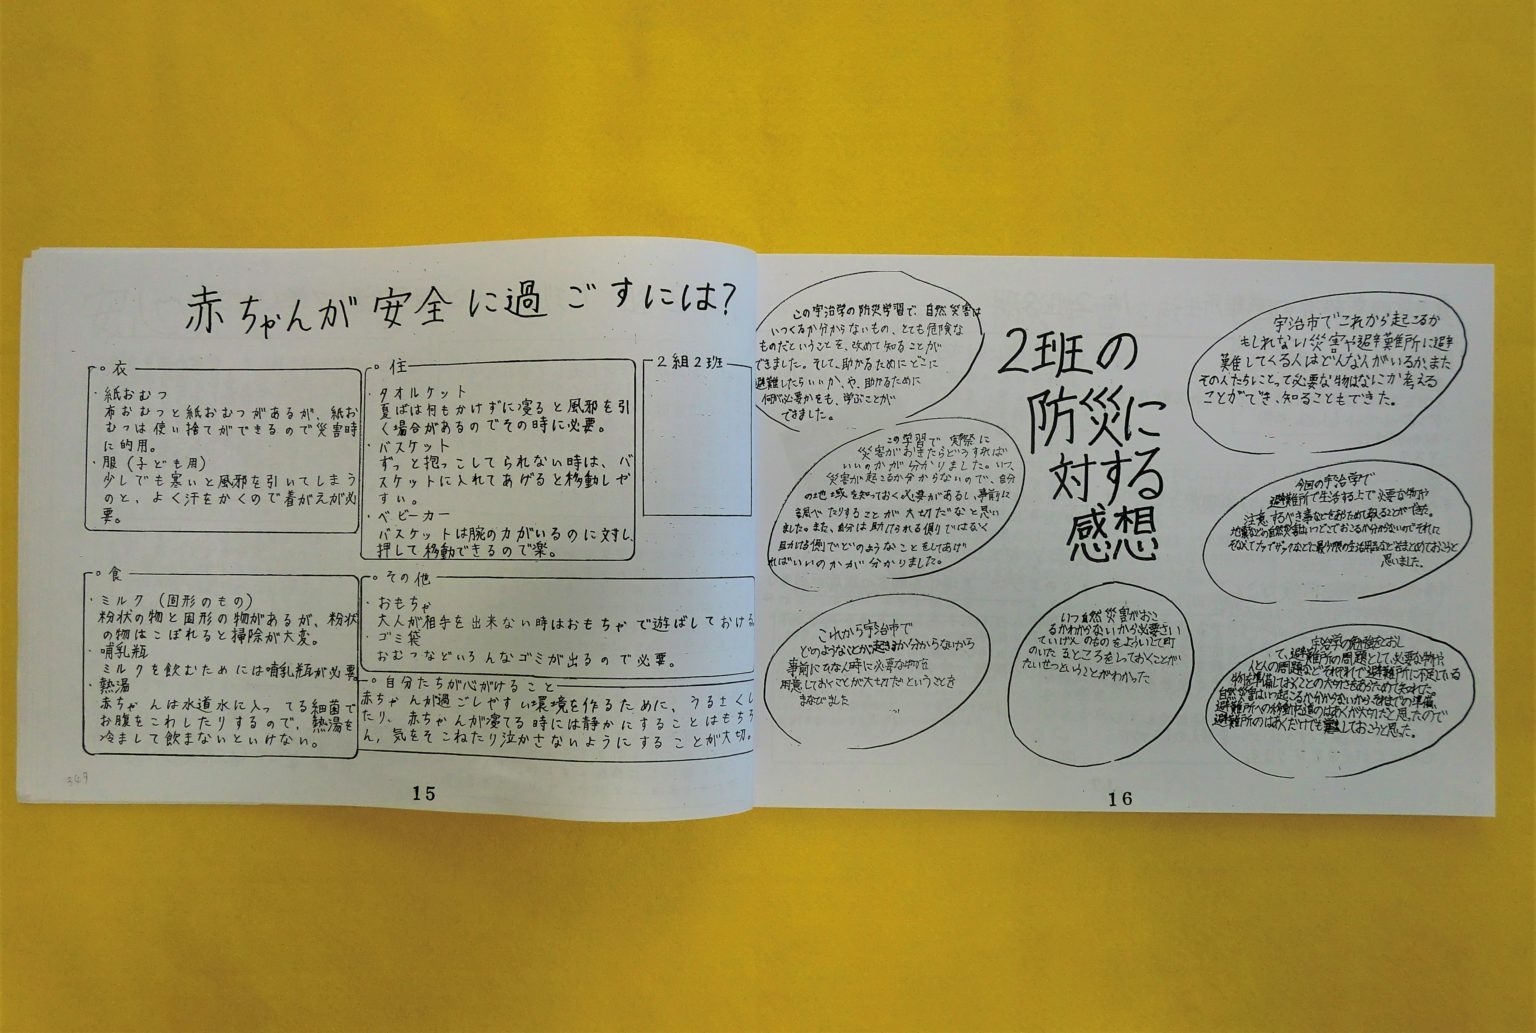 赤ちゃんが安全に過ごすには?
衣
・紙おむつ
布おむつと紙おむつがあるが、紙お
むつは使い捨てができるので災害時
に的用。
・服(子ども用)
少しでも寒いと風邪を引いてしまう
のと、よく汗をかくので着がえが必
要。
住
・タオルケット
夏ばは何もかけずに寝ると風邪を引
く場合があるのでその時に必要。
・バスケット
ずっと抱っこしてられない時は、バ
スケットに入れてあげると移動しや
すい。
・ベビーカー
バスケットは腕の力がいるのに対し、
押して移動できるので楽。
2組2班
食
・ミルク(固形のもの)
粉状の物と固形の物があるが、粉状
の物はこぼれると掃除が大変。
・哺乳瓶
ミルクを飲むためには哺乳瓶が必要
・熱湯
赤ちゃんは水道水に入ってる細菌で
お腹をこわしたりするので、熱湯を
冷まして飲まないといけない。
その他
・おもちゃ
大人が相手を出来ない時はおもちゃで遊ばしておける
・ゴミ袋
おむつなどいろんなゴミが出るので必要。
自分たちが心がけること
赤ちゃんが過ごしやすい環境を作るために、うるさくし
たり、赤ちゃんが寝てる時には静かにすることはもちろ
ん、気をそこねたり泣かさないようにすることが大切。
15
2班の
防災に
対する
感想
この宇治学の防災学習で、自然災害は
いつくるか分からないもの、とても危険な
ものだということを、改めて知ることが
できました。そして、助かるためにどこに
避難したらいいか、や、助かるために
何が必要かをも、学ぶことが
できました。
この学習で実際に
災害がおきたらどうすれば
いいのかが分かりました。いつ、
災害が起こるか分からないので、自分
の地域を知っておく必要があるし、事前に
調べたりすることが大切だなと思い
ました。また、自分は助けられる側ではなく
助ける側でどのようなことをしてあげ
ればいいのかが分かりました。
これから宇治市で
どのようなことが起きるか分からないから
事前にひなん時に必要な物を
用意しておくことが大切だということを
まなびました
いつ自然災害がおこ
るかわからないから必要さい
ていげんのものをよういして町
のいたるところをしておくことが
たいせつということがわかった
宇治市でこれから起こるか
もしれない災害や避難所に避
難してくる人はどんな人がいるか、また
その人たちにとって必要な物はなにか考える
ことができ、知ることもできた。
今回の宇治学で
避難所で生活する上で必要な物や
注意するべき事などをあらためて考えることができた。
地震などの自然災害はいつどこでおこるか分からないのでそれに
そなえてナップザックなどに最少限の生活用品などをまとめておこうと
思いました。
宇治学の勉強をとおし
て、避難所の問題として、必要な物や
人と人の問題など
自然災害はいつ起こるか分からないからそれまでの準備、
避難所への移動
避難所のはあくだけでも
16